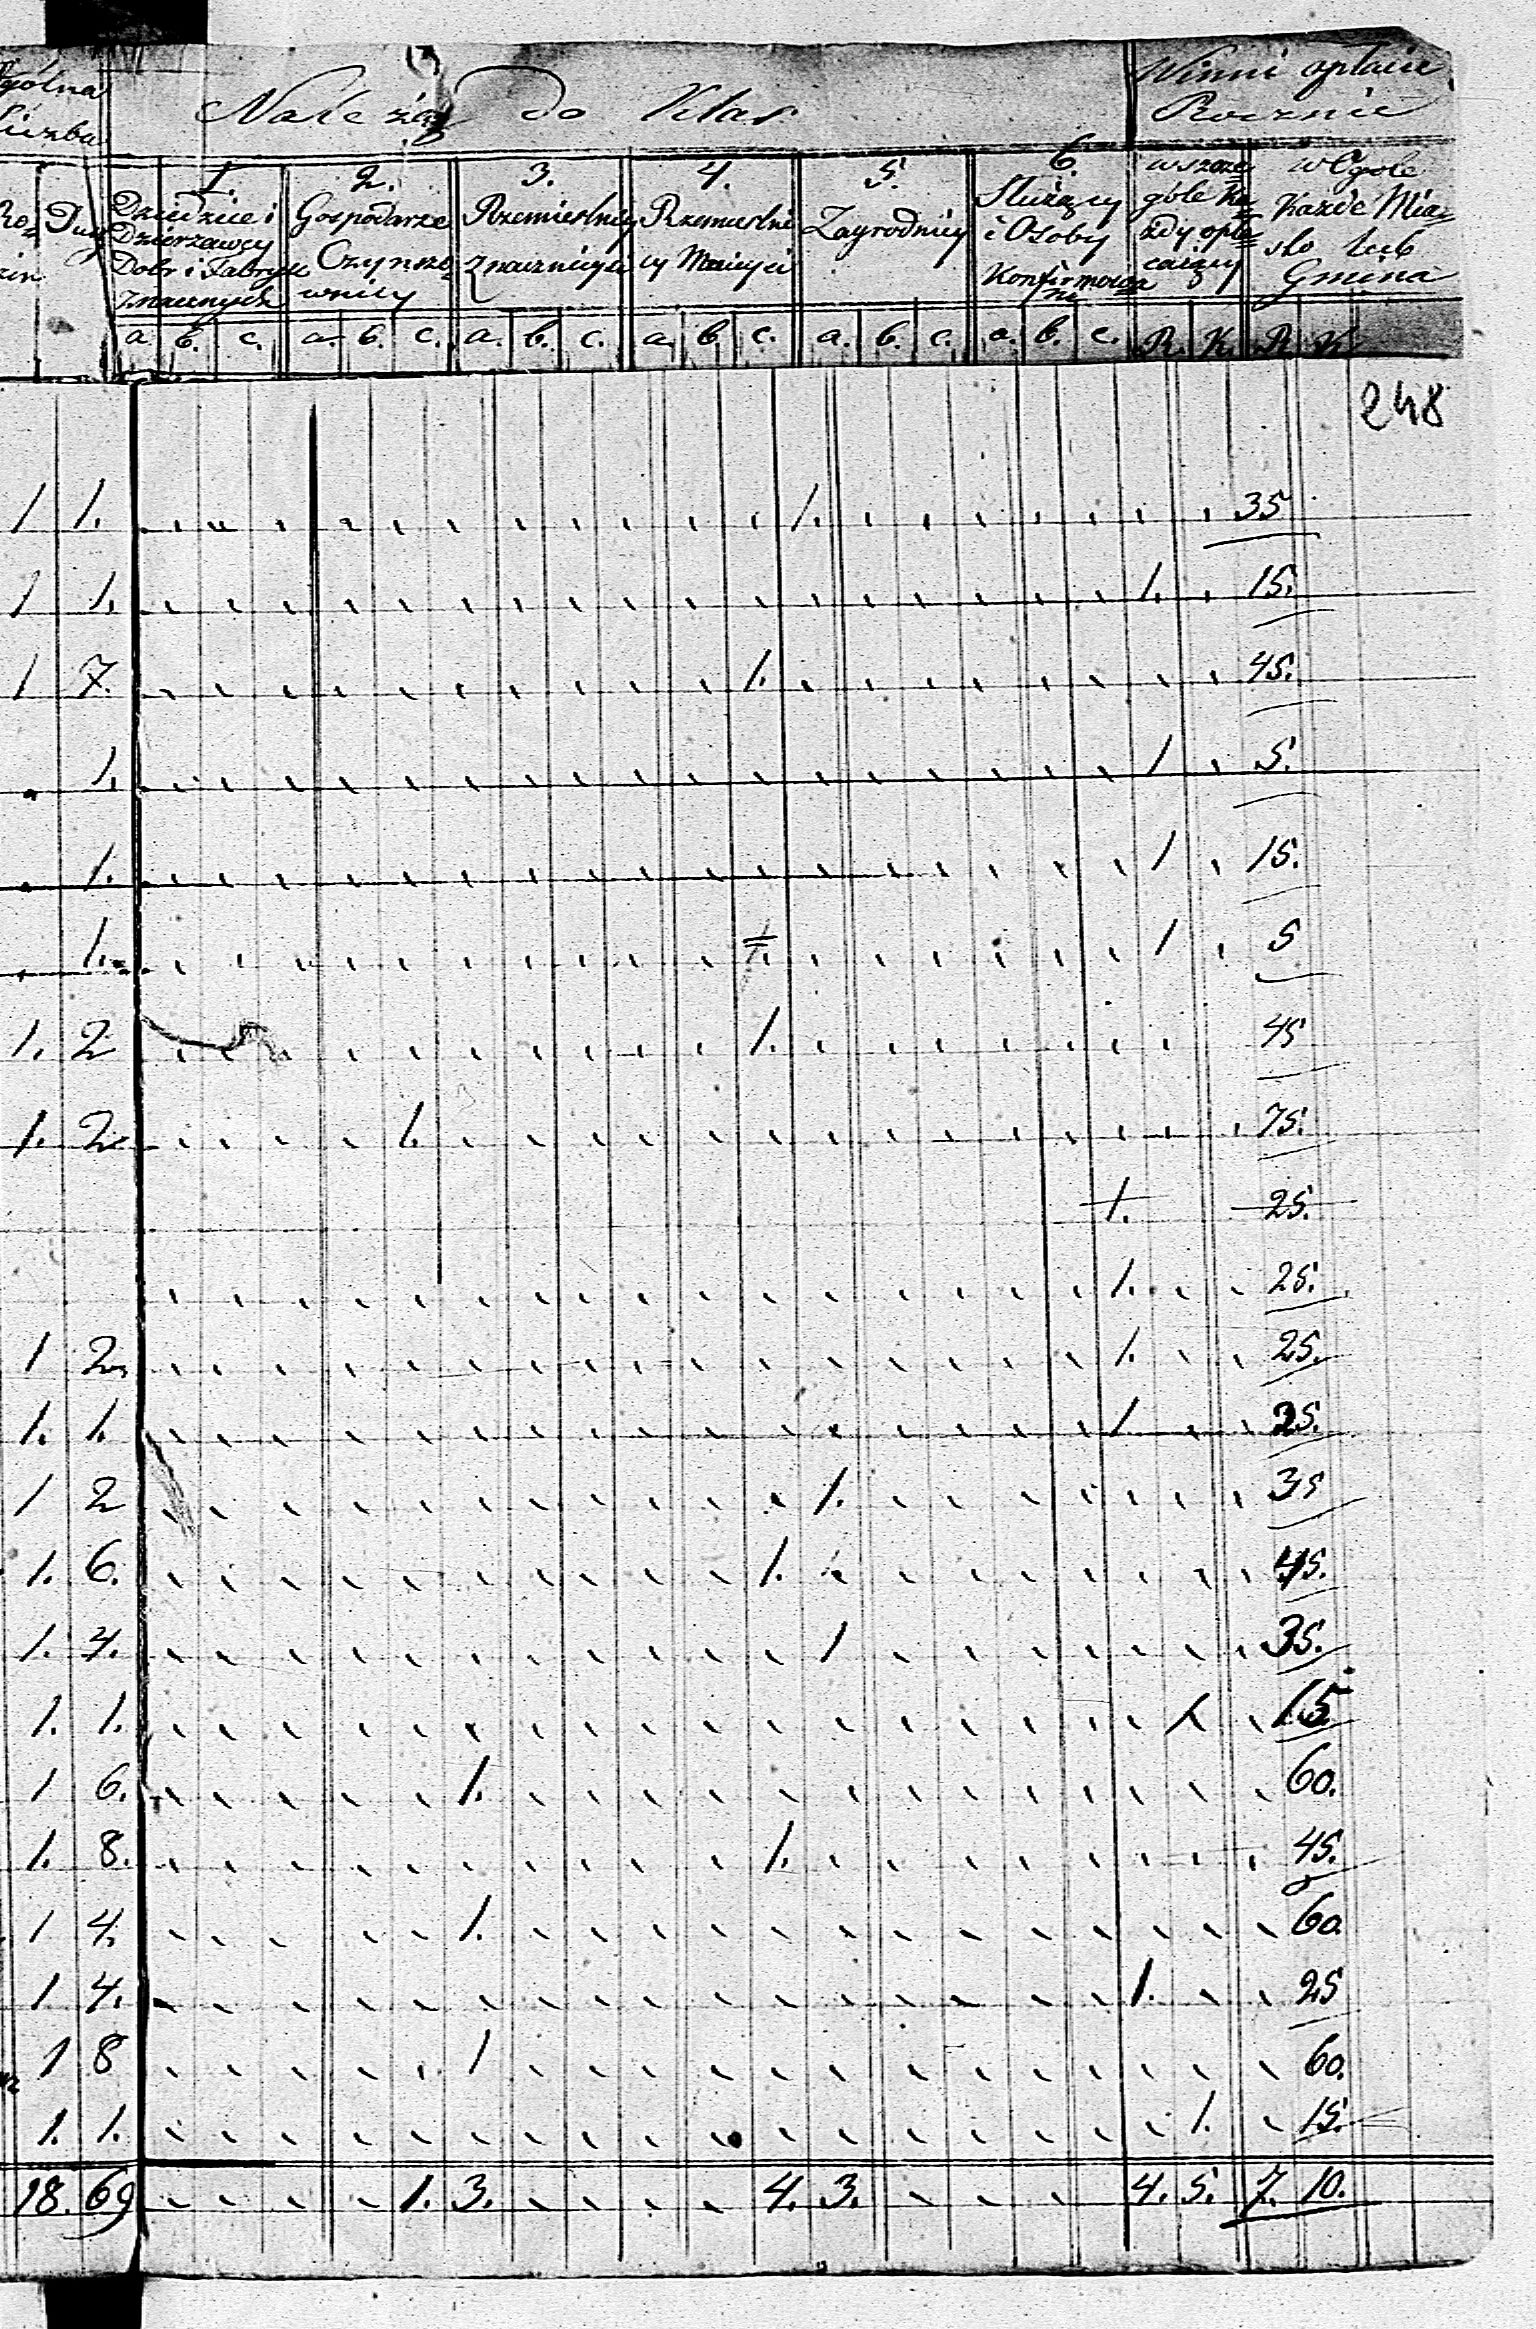 Ogólna Liczba
Należą do Klas
Winni opłacić Rocznie
1. Dziedzice i Dzierzawcy Dobr i Fabryk znacznych
2. Gospodarze Czynszownicy
3. Rzemieslnicy znacznieysi
4. Rzemieslnicy Mnieysi
5. Zagrodnicy
6. Służący i Osoby
w szczególe Każdy opłacaiący
w Ogole Każde Miasto lub Gmina
a. b. c. a. b. c. a. b. c. a. b. c. a. b. c. a. b. c. R. K. R. K.
248
1 1. 1. 35
1 1. 1. 15.
1 7. 1. 45.
1. 1 5.
1. 1 15.
1. 1 5
1. 2 1. 45
1. 2 1. 75.
1. 25.
1. 25.
1 2 1. 25.
1. 1. 1 25.
1 2 1. 35
1. 6. 1. 45.
1. 4. 1 35.
1. 1. 1 15
1 6. 1. 60.
1. 8. 1. 45.
1 4. 1. 60
1 4. 1. 25
1 8 1 60.
1. 1. 1. 15.
18. 69 1. 3. 4. 3. 4. 5. 7. 10.